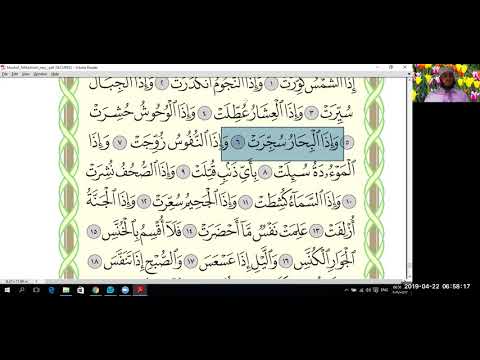 Mushaf_Tahfiz... .pdf (SECURED) - Adobe Reader
إِذَا ٱلشَّمۡسُ كُوِّرَتۡ ١ وَإِذَا ٱلنُّجُومُ ٱنكَدَرَتۡ ٢ وَإِذَا ٱلۡجِبَالُ
سُيِّرَتۡ ٣ وَإِذَا ٱلۡعِشَارُ عُطِّلَتۡ ٤ وَإِذَا ٱلۡوُحُوشُ حُشِرَتۡ
٥ وَإِذَا ٱلۡبِحَارُ سُجِّرَتۡ ٦ وَإِذَا ٱلنُّفُوسُ زُوِّجَتۡ ٧ وَإِذَا
ٱلۡمَوۡءُۥدَةُ سُئِلَتۡ ٨ بِأَيِّ ذَنۢبٖ قُتِلَتۡ ٩ وَإِذَا ٱلصُّحُفُ نُشِرَتۡ
١٠ وَإِذَا ٱلسَّمَآءُ كُشِطَتۡ ١١ وَإِذَا ٱلۡجَحِيمُ سُعِّرَتۡ ١٢ وَإِذَا ٱلۡجَنَّةُ
أُزۡلِفَتۡ ١٣ عَلِمَتۡ نَفۡسٞ مَّآ أَحۡضَرَتۡ ١٤ فَلَآ أُقۡسِمُ بِٱلۡخُنَّسِ ١٥
ٱلۡجَوَارِ ٱلۡكُنَّسِ ١٦ وَٱلَّيۡلِ إِذَا عَسۡعَسَ ١٧ وَٱلصُّبۡحِ إِذَا تَنَفَّسَ ١٨
ENG
2019-04-22 06:58:17